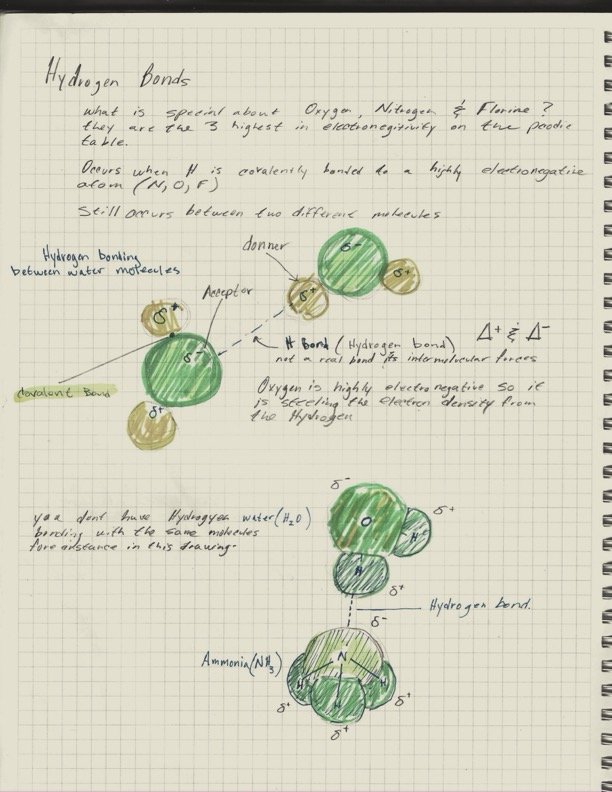 Hydrogen Bonds
what is special about Oxygen, Nitrogen & Florine?
they are the 3 highest in electronegitivity on the peodic
table.
Occurs when H is covalently bonded to a highly electronegative
atom (N, O, F)
Still occurs between two different molecules
Hydrogen bonding
between water molecules
donner
δ-
δ+
δ+
Acceptor
δ+
δ-
δ+
H Bond (Hydrogen bond)
not a real bond its intermolecular forces
Δ+ & Δ-
covalent Bond
Oxygen is highly electronegative so it
is steeling the electron density from
the Hydrogen
you dont have Hydrogyen
bonding with the same molecules
fore instance in this drawing.
water (H2O)
δ-
δ+
O
H
H
δ+
Hydrogen bond.
δ-
Ammonia (NH3)
N
H
H
H
δ+
δ+
δ+